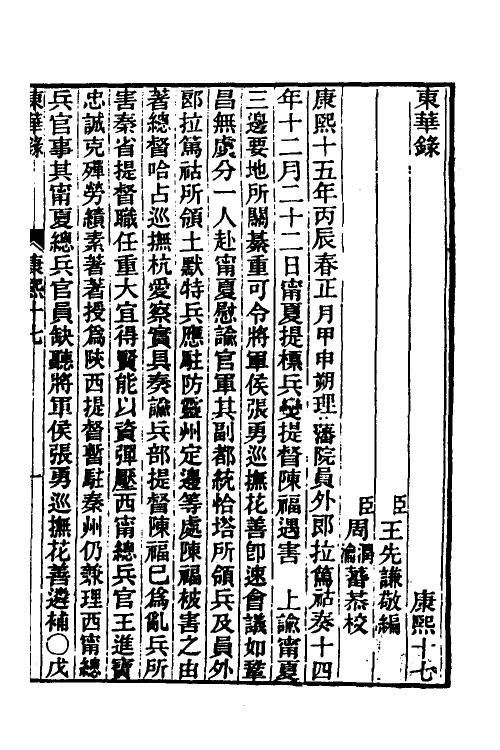 東華錄　康熙十七
臣王先謙敬編
臣周潤蕃周瀹蕃恭校
康熙十五年丙辰春正月甲申朔理藩院員外郎拉篤祜奏十四
年十二月二十二日甯夏提標兵變提督陳福遇害　上諭甯夏
三邊要地所關綦重可令將軍侯張勇巡撫花善卽速會議如鞏
昌無虞分一人赴甯夏慰諭官軍其副都統恰塔所領兵及員外
郎拉篤祜所領土默特兵應駐防靈州定邊等處陳福被害之由
著總督哈占巡撫杭愛察實具奏諭兵部提督陳福巳爲亂兵所
害秦省提督職任重大宜得賢能以資彈壓西甯總兵官王進寶
忠誠克殫勞績素著著授爲陝西提督暫駐秦州仍兼理西甯總
兵官事其甯夏總兵官員缺聽將軍侯張勇巡撫花善遴補〇戊
東華錄　康熙十七　一